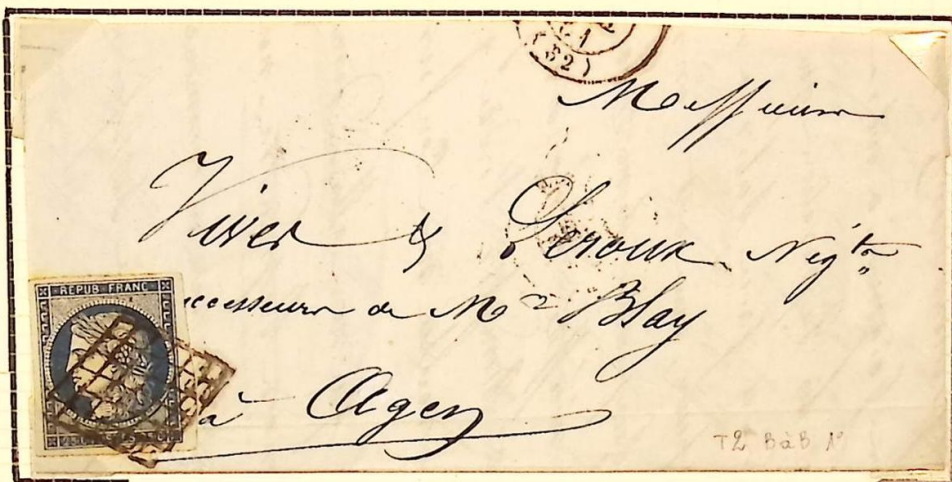 51
(32)
Messieurs
Viver & Leroux Négts
Successeurs de Mr Blay
à Agen
REPUB FRANC
T2 BàB N°